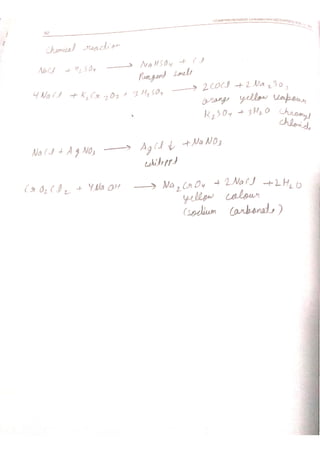 Chemical reaction
NaCl + H2SO4 ⟶ NaHSO4 + Cl
Pungent smell
4 NaCl + K2Cr2O7 + 3H2SO4 ⟶ 2COCl + 2Na2SO4
orange yellow vapour
K2SO4 + 3H2O chromyl
chloride
NaCl + AgNO3 ⟶ AgCl ↓ + NaNO3
white ppt
CrO2Cl2 + 4NaOH ⟶ Na2CrO4 + 2NaCl + 2H2O
yellow colour
(sodium carbonate)